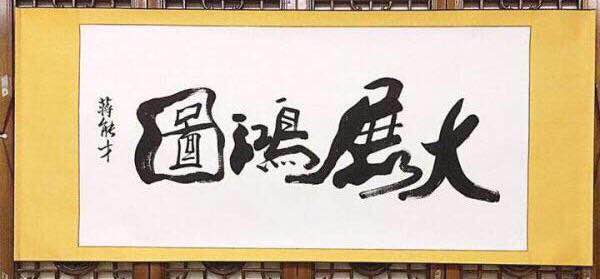 大展鴻圖
蔣能才